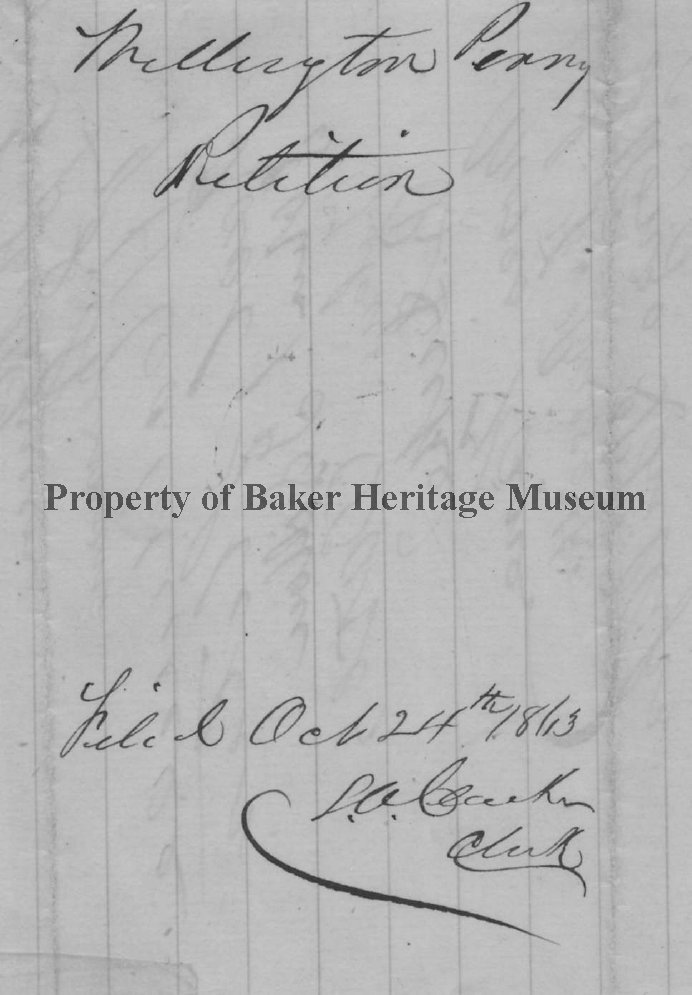 Wellington Penny
Petition
Property of Baker Heritage Museum
Filed Oct 24th 1873
S.A.
Clerk